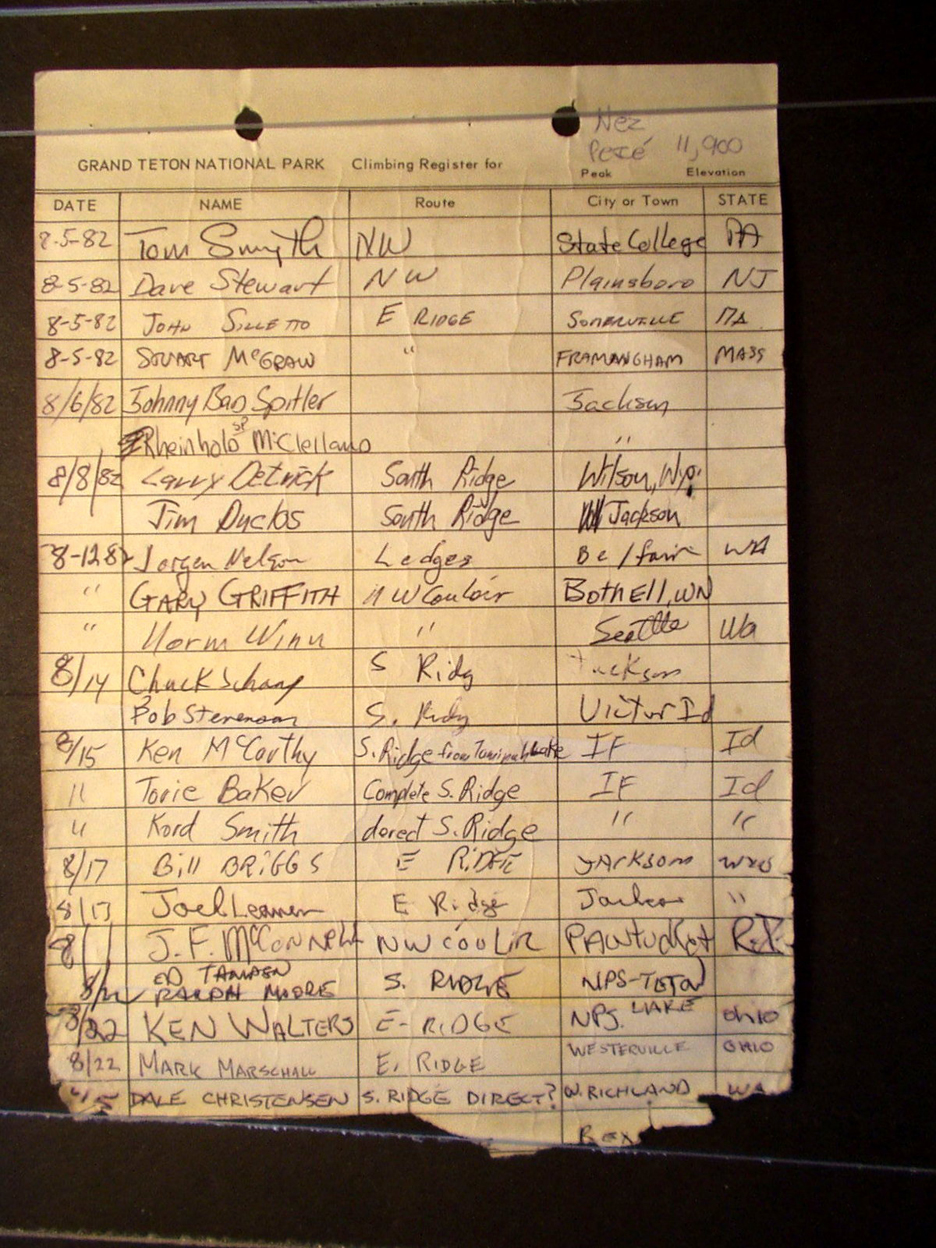 Nez
Percé 11,900
GRAND TETON NATIONAL PARK Climbing Register for Peak Elevation
DATE NAME Route City or Town STATE
8-5-82 Tom Smyth NW State College PA
8-5-82 Dave Stewart NW Plainsboro NJ
8-5-82 JOHN SILLETTO E RIDGE SOMERVILLE MA
8-5-82 STUART McGRAW " FRAMANGHAM MASS
8/6/82 Johnny Bao Spitler Jackson
Rheinhold SP McClelland "
8/8/82 Larry Detrick South Ridge Wilson, Wyo.
Jim Duclos South Ridge Jackson
8-12-82 Jorgen Nelson Ledges Belfair WA
" GARY GRIFFITH NW Couloir BOTHELL, WN
" Norm Winn " Seattle Wa
8/14 Chuck Schaap S Ridg Jackson
Bob Stevenson S. Ridg Victor Id
8/15 Ken McCarthy S. Ridge from Taminah Lake IF Id
11 Torie Baker Complete S. Ridge IF Id
" Kord Smith dorect S. Ridge " "
8/17 Bill BRIGGS E RiDGE JArksom wyo
8/13 Joel Leamen E Ridge Jackson "
8/ J. F. McConnell NW couLiR PAWtucket R.I.
ED TAMPEN
RALPH MOORE S. RIDGE NPS-TETON
8/22 KEN WALTERS E- RIDGE NPS. LAKE OHIO
8/22 MARK MARSCHALL E. RIDGE WESTERVILLE OHIO
DALE CHRISTENSEN S. RIDGE DIRECT? W. RICHLAND WA
REX